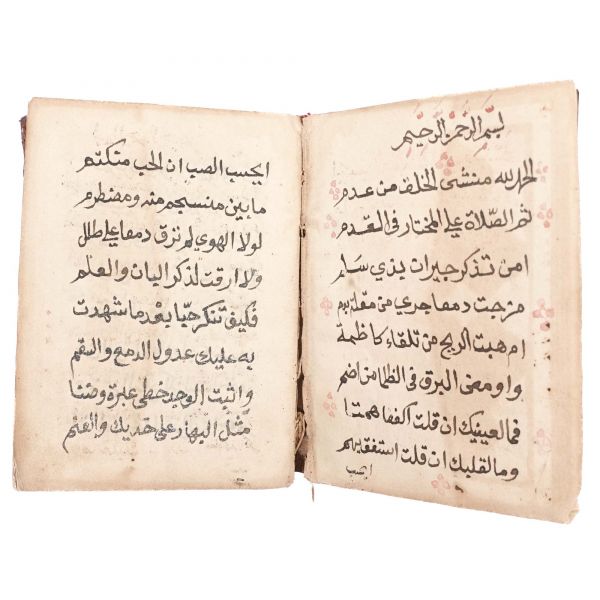 بسم الله الرحمن الرحيم
الحمد لله منشئ الخلق من عدم
ثم الصلاة علي المختار في القدم
امن تذكر جيران بذي سلم
مزجت دمعا جري من مقلة بدم
ام هبت الريح من تلقاء كاظمة
واومض البرق في الظلما من اضم
فما لعينيك ان قلت اكففا همتا
وما لقلبك ان قلت استفق يهم
ايحسب
ايحسب الصب ان الحب منكتم
ما بين منسجم منه ومضطرم
لولا الهوي لم ترق دمعا علي طلل
ولا ارقت لذكر البان والعلم
فكيف تنكر حبا بعد ما شهدت
به عليك عدول الدمع والسقم
واثبت الوجد خطي عبرة وضنا
مثل البهار علي خديك والعنم